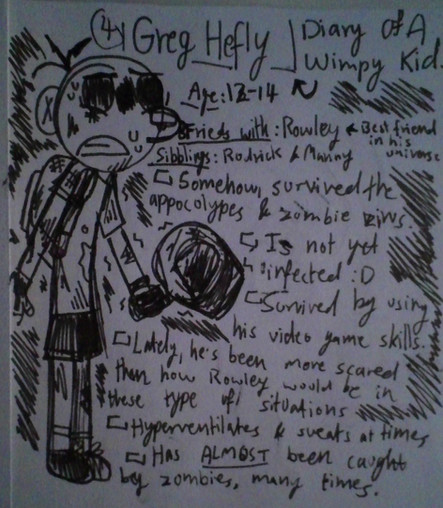 4) Greg Hefly
Diary of A
Wimpy Kid.
Age: 12-14
Frieds with: Rowley ← Best friend
in his
universe
Sibblings: Rodrick & Manny
Somehow, survived the
appocolypes & zombie virus.
Is not yet
infected :D
Survived by using
his video game skills.
Lately, he's been more scared
than how Rowley would be in
these type of situations
Hyperventilates & sweats at times
Has ALMOST been caught
by zombies, many times.